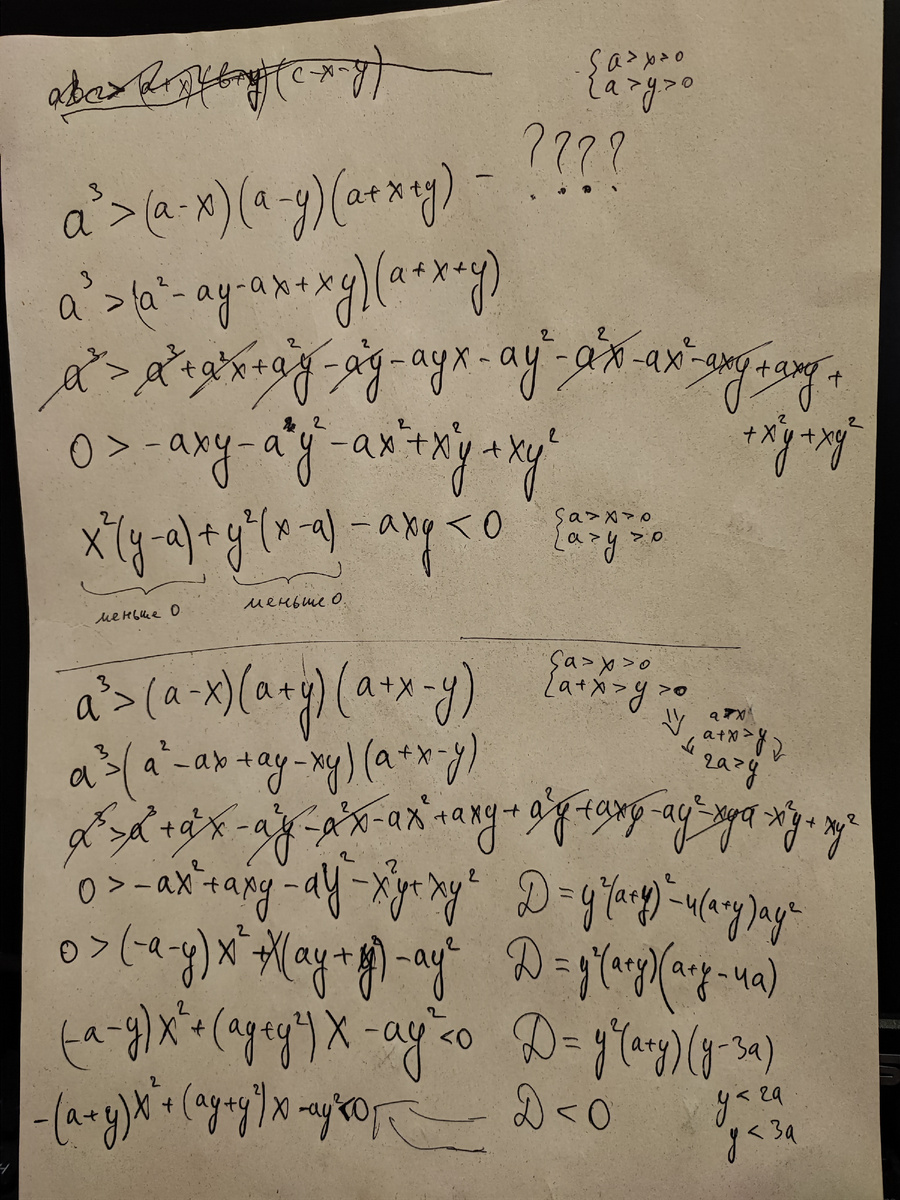 abc > (a+x)(b+y)(c-x-y)
{a>x>0
{a>y>0
a³ > (a-x)(a-y)(a+x+y) - ????
a³ > (a² - ay - ax + xy)(a+x+y)
a³ > a³ + a²x + a²y - a²y - ayx - ay² - a²x - ax² - axy + axy +
+ x²y + xy²
0 > -axy - ay² - ax² + x²y + xy²
x²(y-a) + y²(x-a) - axy < 0
{a>x>0
{a>y>0
меньше 0 меньше 0
a³ > (a-x)(a+y)(a+x-y)
{a>x>0
{a+x>y>0
⇓ a>x
a+x>y
2a>y
a³ > (a² - ax + ay - xy)(a+x-y)
a³ > a³ + a²x - a²y - a²x - ax² + axy + a²y + axy - ay² - xya - x²y + xy²
0 > -ax² + axy - ay² - x²y + xy²
D = y²(a+y)² - 4(a+y)ay²
0 > (-a-y)x² + x(ay+y²) - ay²
D = y²(a+y)(a+y-4a)
(-a-y)x² + (ay+y²)x - ay² < 0
D = y²(a+y)(y-3a)
-(a+y)x² + (ay+y²)x - ay² < 0
D < 0
y < 2a
y < 3a